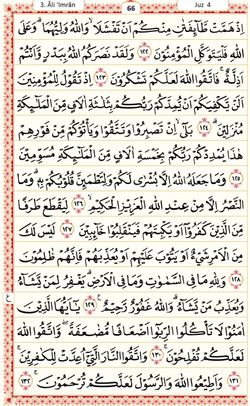 3. Āli 'Imrān
66
Juz 4
اِذْ هَمَّتْ طَّآىِٕفَتٰنِ مِنْكُمْ اَنْ تَفْشَلَاۙ وَاللّٰهُ وَلِيُّهُمَاؕ وَعَلَى
اللّٰهِ فَلْيَتَوَكَّلِ الْمُؤْمِنُوْنَ ١٢٢ وَلَقَدْ نَصَرَكُمُ اللّٰهُ بِبَدْرٍ وَّاَنْتُمْ
اَذِلَّةٌۚ فَاتَّقُوا اللّٰهَ لَعَلَّكُمْ تَشْكُرُوْنَ ١٢٣ اِذْ تَقُوْلُ لِلْمُؤْمِنِيْنَ
اَلَنْ يَّكْفِيَكُمْ اَنْ يُّمِدَّكُمْ رَبُّكُمْ بِثَلٰثَةِ اٰلٰفٍ مِّنَ الْمَلٰٓىِٕكَةِ
مُنْزَلِيْنَ ١٢٤ بَلٰٓىۙ اِنْ تَصْبِرُوْا وَتَتَّقُوْا وَيَاْتُوْكُمْ مِّنْ فَوْرِهِمْ
هٰذَا يُمْدِدْكُمْ رَبُّكُمْ بِخَمْسَةِ اٰلٰفٍ مِّنَ الْمَلٰٓىِٕكَةِ مُسَوِّمِيْنَ
١٢٥ وَمَا جَعَلَهُ اللّٰهُ اِلَّا بُشْرٰى لَكُمْ وَلِتَطْمَىِٕنَّ قُلُوْبُكُمْ بِهٖؕ وَمَا
النَّصْرُ اِلَّا مِنْ عِنْدِ اللّٰهِ الْعَزِيْزِ الْحَكِيْمِۙ ١٢٦ لِيَقْطَعَ طَرَفًا
مِّنَ الَّذِيْنَ كَفَرُوْٓا اَوْ يَكْبِتَهُمْ فَيَنْقَلِبُوْا خَآىِٕبِيْنَ ١٢٧ لَيْسَ لَكَ
مِنَ الْاَمْرِ شَيْءٌ اَوْ يَتُوْبَ عَلَيْهِمْ اَوْ يُعَذِّبَهُمْ فَاِنَّهُمْ ظٰلِمُوْنَ
١٢٨ وَلِلّٰهِ مَا فِى السَّمٰوٰتِ وَمَا فِى الْاَرْضِؕ يَغْفِرُ لِمَنْ يَّشَآءُ
وَيُعَذِّبُ مَنْ يَّشَآءُؕ وَاللّٰهُ غَفُوْرٌ رَّحِيْمٌ ١٢٩ يٰٓاَيُّهَا الَّذِيْنَ
اٰمَنُوْا لَا تَاْكُلُوا الرِّبٰٓوا اَضْعَافًا مُّضٰعَفَةًۖ وَّاتَّقُوا اللّٰهَ
لَعَلَّكُمْ تُفْلِحُوْنَۚ ١٣٠ وَاتَّقُوا النَّارَ الَّتِيْٓ اُعِدَّتْ لِلْكٰفِرِيْنَۚ
١٣١ وَاَطِيْعُوا اللّٰهَ وَالرَّسُوْلَ لَعَلَّكُمْ تُرْحَمُوْنَۚ ١٣٢
ع